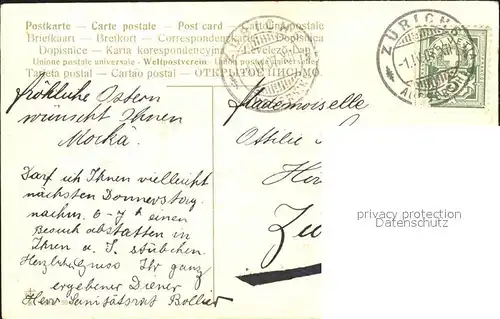 Postkarte - Carte postale - Post card - Cartolina postale
Briefkaart - Brefkort - Correspondenzkarte
Dopisnice - Karta korespondencyjna - Levelező-Lap
Unione postale universale - Weltpostverein - Union postale universelle
Tarjeta postal - Cartão postal - ОТКРЫТОЕ ПИСЬМО.
ZÜRICH
fröhliche Ostern
wünscht Ihnen
Morkâ.
Darf ich Ihnen vielleicht
nächsten Donnerstag
nachm. 6-7 h einen
Besuch abstatten in
Ihren a. S. stübchen.
Ihr ganz
ergebener Diener
Herr Sanitätsrat Bollier
Mademoiselle
Ottilie
privacy protection
datenschutz